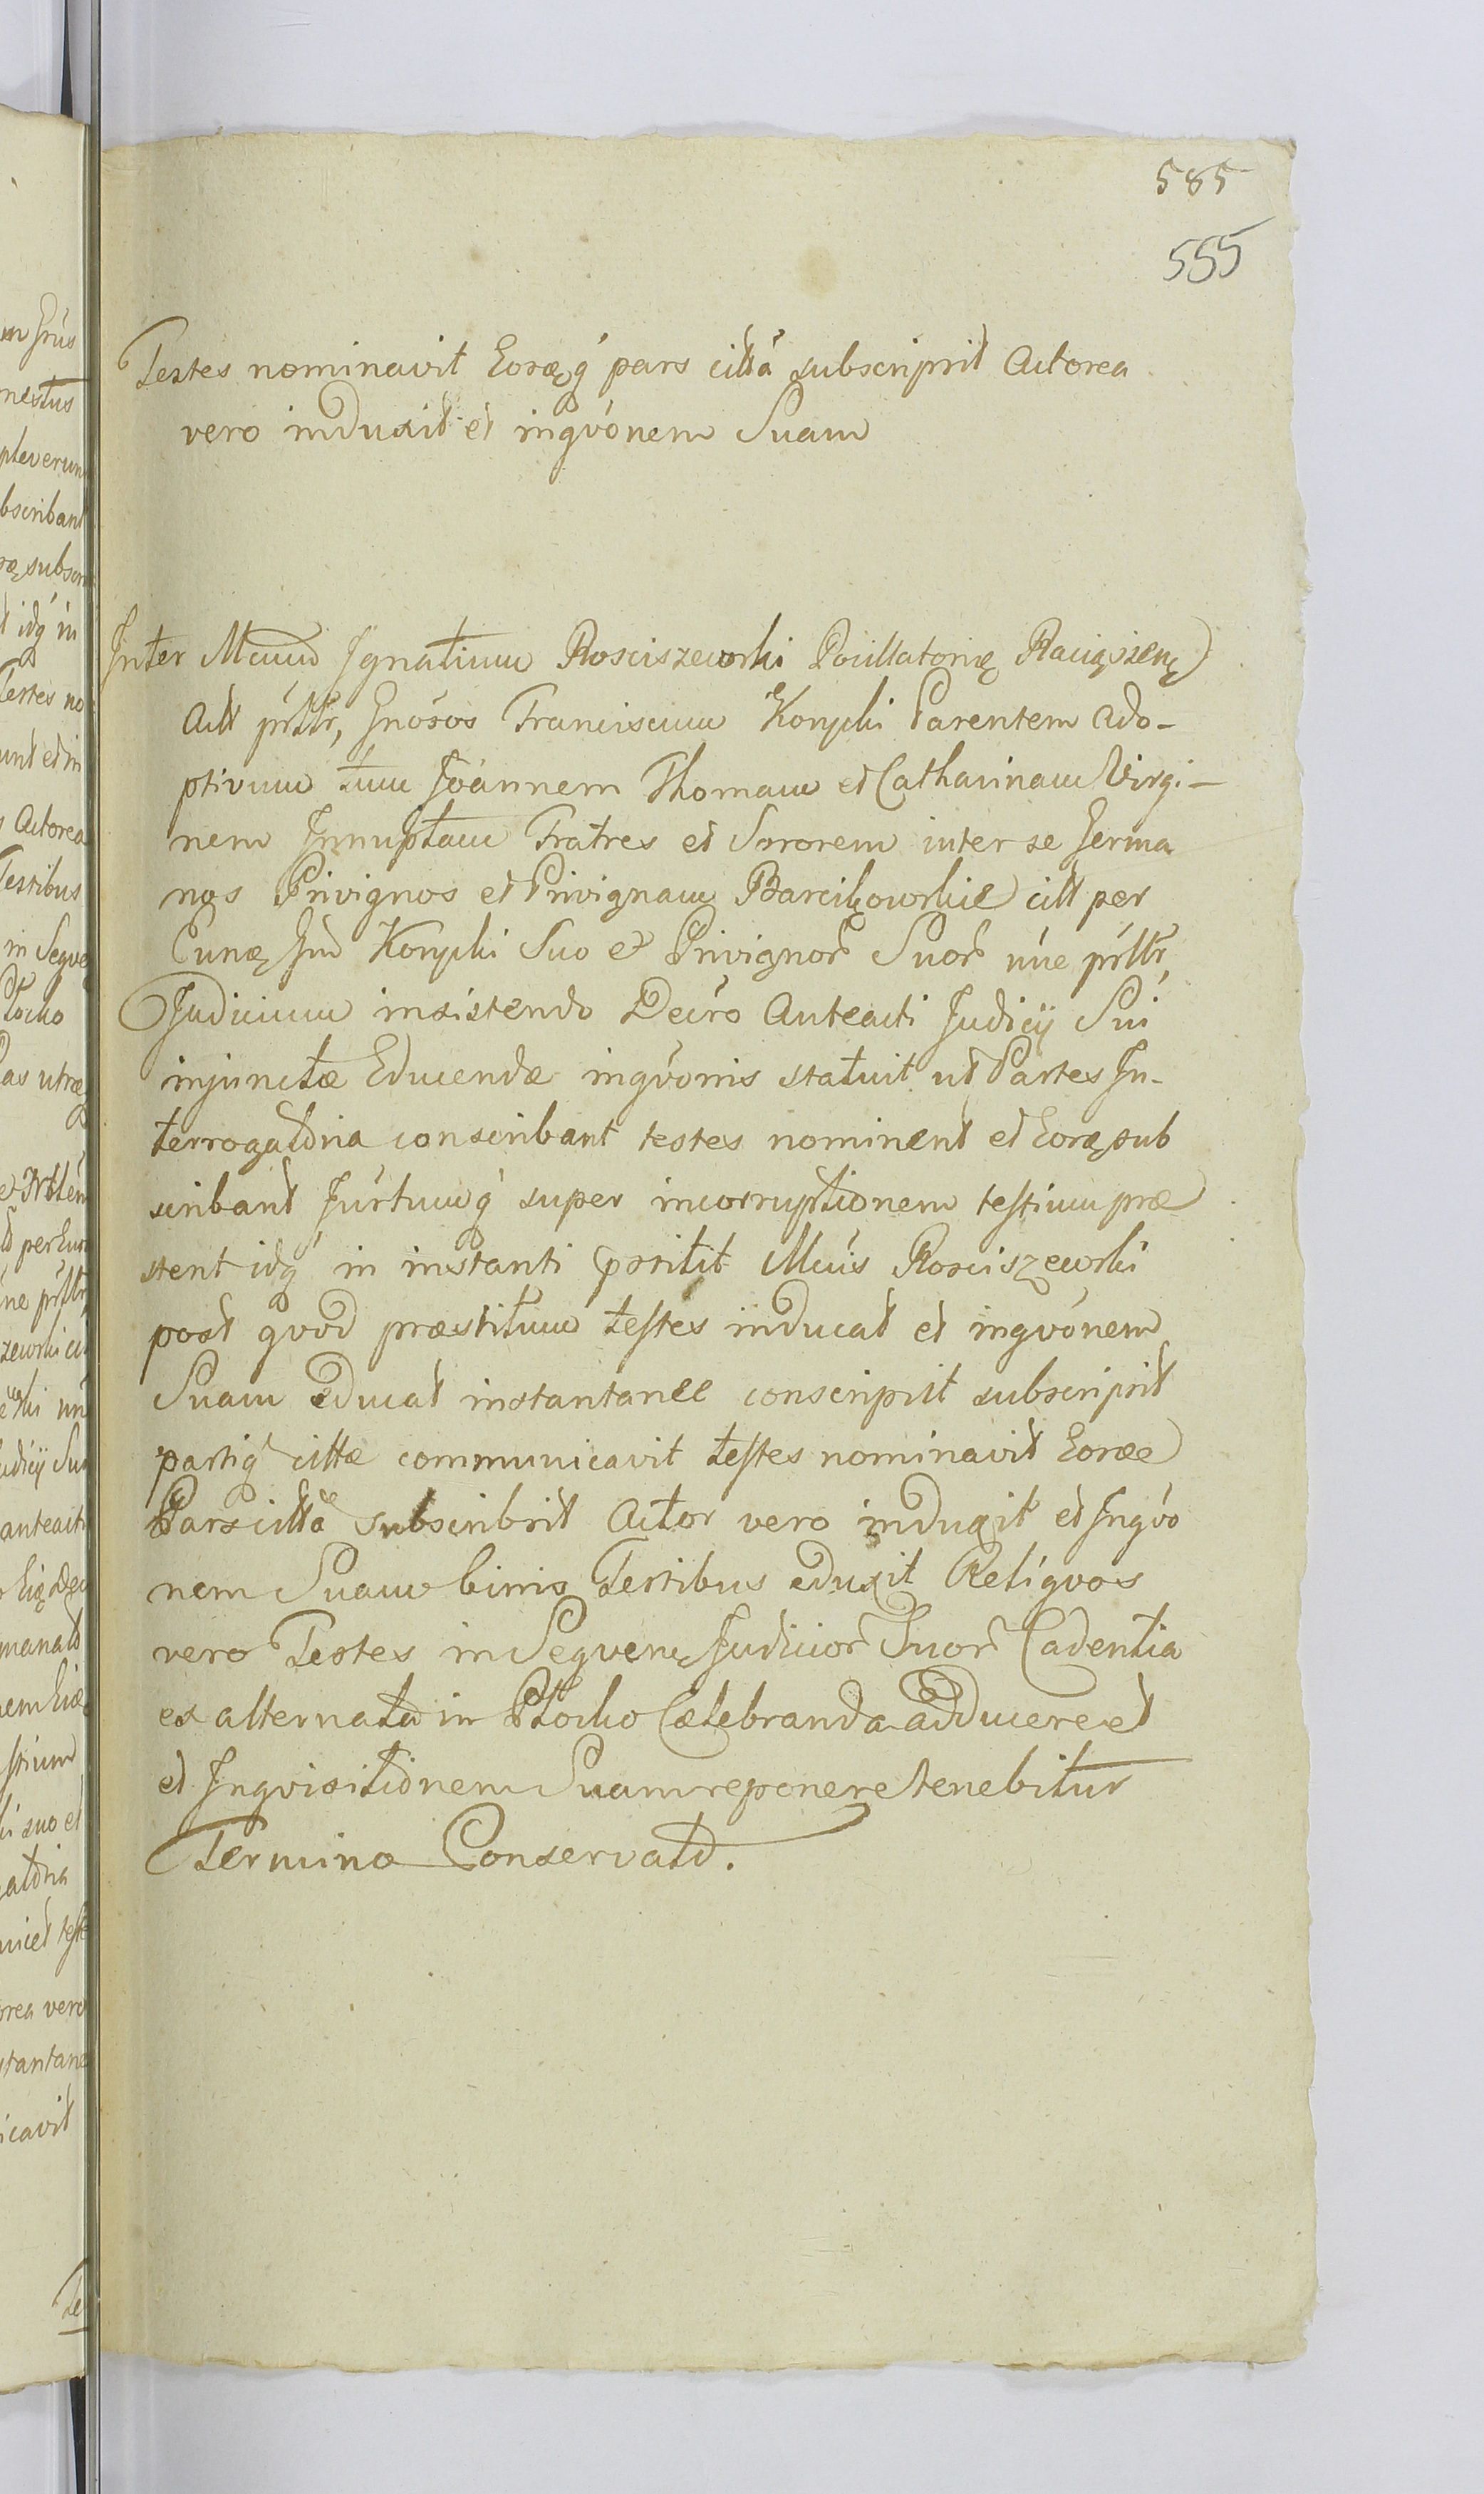 585
555
Testes nominavit Eorq́ pars cittá subscripsit Actorea
vero induxit et inqvónem Suam
Inter Mcum Ignatium Rosciszewski Pocillatorię Raciązenę
Actt prttr, Gnósos Franciscum Konycki Parentem ado-
ptivum tum Joánnem Thomam et Catharinam Virgi-
nem Innuptam Fratres et Sororem inter se Germa
nos Privignos et Privignam Barcikowskie citt per
Eund Gnd Konycki Suo et Privignor Suor nńe prttr,
Judicium insistendo Decro Anteacti Judicij Sui
injunctæ Educendæ inqvonis statuit ut Partes In-
terrogatoria conscribant testes nominent et Eor sub
scribant Jurtumq́ super incorruptionem testium præ
stent idq́ in instanti prstitit Mcus Rosciszewski
post qvod præstitum testes inducat et inqvónem
Suam educat instantanee conscripsit subscripsit
partiq́ cittæ communicavit testes nominavit Eoræ
Pars cittá subscribsit Actor vero induxit et Inqvo
nem Suam binis Testibus eduxit Reliqvos
vero Testes in Seqven Judicior Suor Cadentia
ex alternata in Plocko Cælebranda adducere et
et Inqvisitionem Suam reponere tenebitur
Termino Conservato.